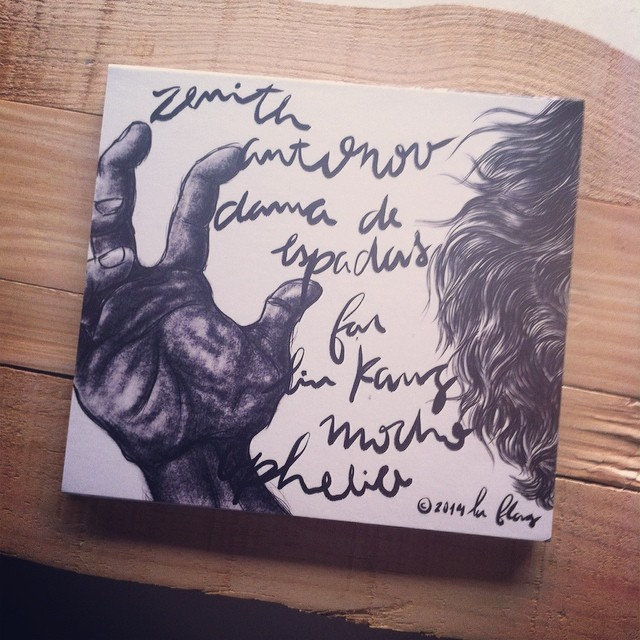 zenith
antonov
dama de
espadas
far
liu Kang
mocho
ophelia
©2014 la flag